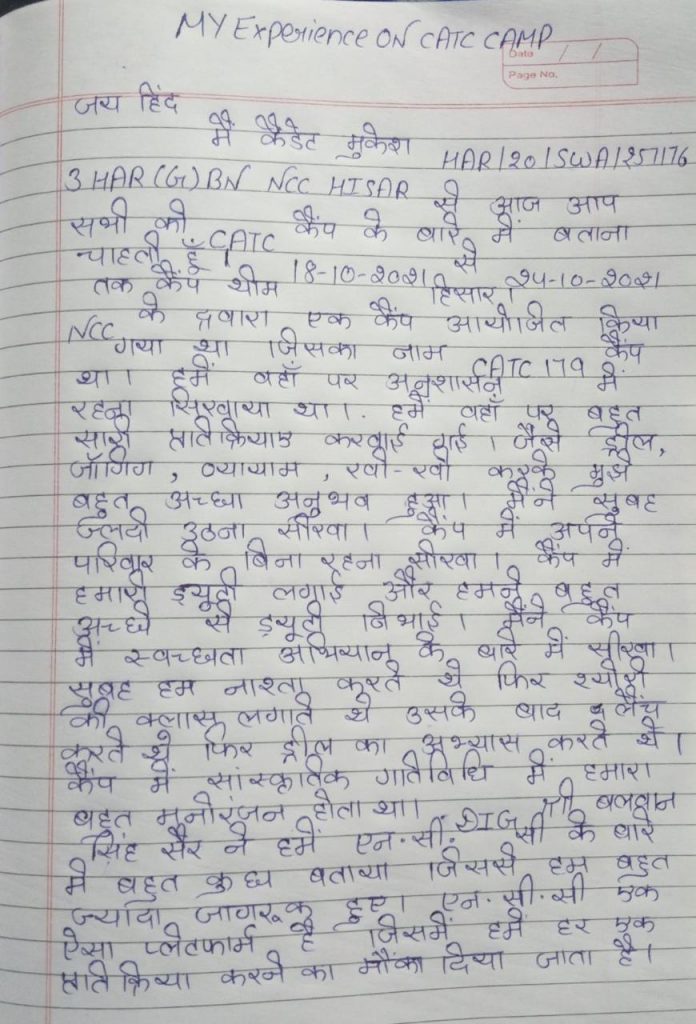 MY Experience ON CATC CAMP
Date / /
Page No.
जय हिंद
मैं कैडेट मुकेश HAR/20/SWA/257176
3 HAR(G) BN NCC HISAR से आज आप
सभी को CATC कैंप के बारे में बताना
चाहती हूँ। 18-10-2021 से 24-10-2021
तक कैंप थीम हिसार।
NCC के द्वारा एक कैंप आयोजित किया
गया था जिसका नाम CATC 179 कैंप
था। हमें वहाँ पर अनुशासन में
रहना सिखाया था। हमें वहाँ पर बहुत
सारी प्रतिक्रियाए करवाई गई। जैसे ड्रील,
जॉगिंग, व्यायाम, खो-खो करके मुझे
बहुत अच्छा अनुभव हुआ। मैंने सुबह
जलदी उठना सीखा। कैंप में अपने
परिवार के बिना रहना सीखा। कैंप में
हमारी ड्यूटी लगाई और हमने बहुत
अच्छे से ड्यूटी निभाई। मैंने कैंप
में स्वच्छता अभियान के बारे में सीखा।
सुबह हम नाश्ता करते थे फिर थ्योरी
की क्लास लगाते थे उसके बाद लंच
करते थे फिर ड्रील का अभ्यास करते थे।
कैंप में सांस्कृतिक गतिविधि में हमारा
बहुत मनोरंजन होता था। DIG श्री बलवान
सिंह सैर ने हमें एन.सी. सी के बारे
में बहुत कुछ बताया जिससे हम बहुत
ज्यादा जागरूक हुए। एन.सी.सी एक
ऐसा प्लेटफार्म है जिसमें हमें हर एक
प्रतिक्रिया करने का मौका दिया जाता है।